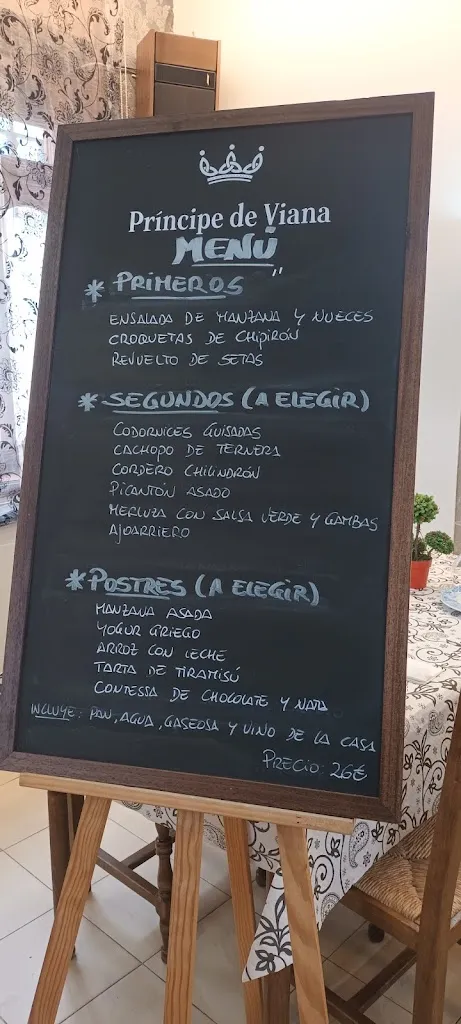 Príncipe de Viana
MENÚ
* PRIMEROS "
ENSALADA DE MANZANA Y NUECES
CROQUETAS DE CHIPIRÓN
REVUELTO DE SETAS
* SEGUNDOS (A ELEGIR)
CODORNICES GUISADAS
CACHOPO DE TERNERA
CORDERO CHILINDRÓN
PICANTÓN ASADO
MERLUZA CON SALSA VERDE Y GAMBAS
AJOARRIERO
* POSTRES (A ELEGIR)
MANZANA ASADA
YOGUR GRIEGO
ARROZ CON LECHE
TARTA DE TIRAMISÚ
CONTESSA DE CHOCOLATE Y NATA
INCLUYE: PAN, AGUA, GASEOSA Y VINO DE LA CASA
PRECIO: 26€